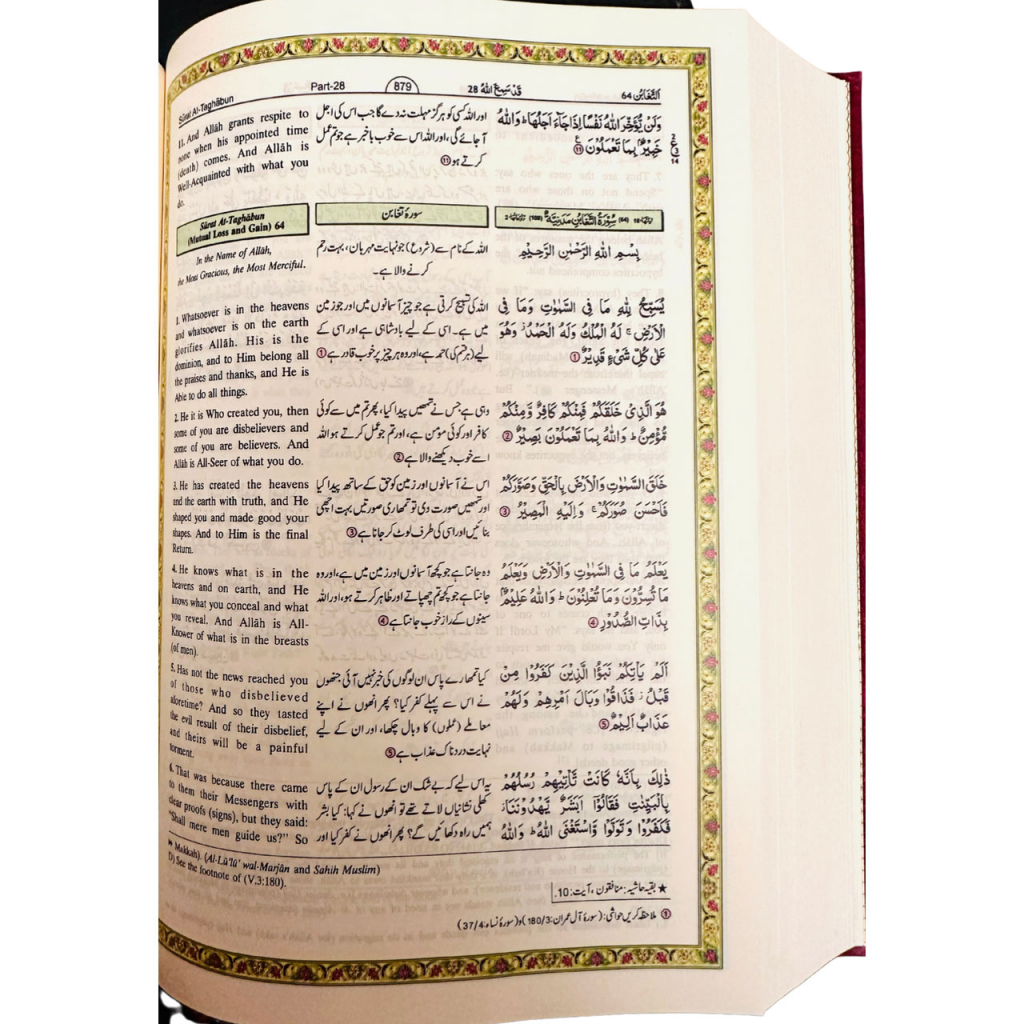 Sûrat Al-Taghâbun
Part-28
879
قَدْ سَمِعَ اللهُ 28
اَلتَّغَابُن 64
11. And Allâh grants respite to
none when his appointed time
(death) comes. And Allâh is
Well-Acquainted with what you
do.
Sûrat At-Taghâbun
(Mutual Loss and Gain) 64
In the Name of Allâh,
the Most Gracious, the Most Merciful.
1. Whatsoever is in the heavens
and whatsoever is on the earth
glorifies Allâh. His is the
dominion, and to Him belong all
the praises and thanks, and He is
Able to do all things.
2. He it is Who created you, then
some of you are disbelievers and
some of you are believers. And
Allâh is All-Seer of what you do.
3. He has created the heavens
and the earth with truth, and He
shaped you and made good your
shapes. And to Him is the final
Return.
4. He knows what is in the
heavens and on earth, and He
knows what you conceal and what
you reveal. And Allâh is All-
Knower of what is in the breasts
(of men).
5. Has not the news reached you
of those who disbelieved
aforetime? And so they tasted
the evil result of their disbelief,
and theirs will be a painful
torment.
6. That was because there came
to them their Messengers with
clear proofs (signs), but they said:
"Shall mere men guide us?" So
اور اللہ کسی کو ہرگز مہلت نہ دے گا جب اس کی اجل
آ جائے گی، اور اللہ اس سے خوب باخبر ہے جو تم عمل
کرتے ہو ⑪
سورۂ تغابن
اللہ کے نام سے (شروع) جو نہایت مہربان، بہت رحم
کرنے والا ہے۔
اللہ کی تسبیح کرتی ہے جو چیز آسمانوں میں اور جو زمین
میں ہے۔ اسی کے لیے بادشاہی ہے اور اسی کے
لیے (ہر تم کی) حمد ہے، اور وہ ہر چیز پر خوب قادر ہے ①
وہی ہے جس نے تمھیں پیدا کیا، پھر تم میں سے کوئی
کافر اور کوئی مؤمن ہے، اور تم جو عمل کرتے ہو اللہ
اسے خوب دیکھنے والا ہے ②
اس نے آسمانوں اور زمین کو حق کے ساتھ پیدا کیا
اور تمھیں صورت دی تو تمھاری صورتیں بہت اچھی
بنائیں اور اسی کی طرف لوٹ کر جانا ہے ③
وہ جانتا ہے جو کچھ آسمانوں اور زمین میں ہے، اور وہ
جانتا ہے جو کچھ تم چھپاتے اور ظاہر کرتے ہو، اور اللہ
سینوں کے راز خوب جانتا ہے ④
کیا تمھارے پاس ان لوگوں کی خبر نہیں آئی جنھوں
نے اس سے پہلے کفر کیا؟ پھر انھوں نے اپنے
معاملے (عملوں) کا وبال چکھا، اور ان کے لیے
نہایت دردناک عذاب ہے ⑤
یہ اس لیے کہ بے شک ان کے رسول ان کے پاس
کھلی نشانیاں لاتے تھے تو انھوں نے کہا: کیا بشر
ہمیں راہ دکھائیں گے؟ پھر انھوں نے کفر کیا اور
وَلَنْ يُّؤَخِّرَ اللهُ نَفْسًا اِذَا جَآءَ اَجَلُهَا ؕ وَاللهُ
خَبِيْرٌۢ بِمَا تَعْمَلُوْنَ ⑪
سُوْرَةُ التَّغَابُنِ مَدَنِيَّةٌ (64) (108)
بِسْمِ اللهِ الرَّحْمٰنِ الرَّحِيْمِ
يُسَبِّحُ لِلّٰهِ مَا فِي السَّمٰوٰتِ وَمَا فِي
الْاَرْضِ ۚ لَهُ الْمُلْكُ وَلَهُ الْحَمْدُ ۫ وَهُوَ
عَلٰى كُلِّ شَيْءٍ قَدِيْرٌ ①
هُوَ الَّذِيْ خَلَقَكُمْ فَمِنْكُمْ كَافِرٌ وَّمِنْكُمْ
مُّؤْمِنٌ ؕ وَاللهُ بِمَا تَعْمَلُوْنَ بَصِيْرٌ ②
خَلَقَ السَّمٰوٰتِ وَالْاَرْضَ بِالْحَقِّ وَصَوَّرَكُمْ
فَاَحْسَنَ صُوَرَكُمْ ۚ وَاِلَيْهِ الْمَصِيْرُ ③
يَعْلَمُ مَا فِي السَّمٰوٰتِ وَالْاَرْضِ وَيَعْلَمُ
مَا تُسِرُّوْنَ وَمَا تُعْلِنُوْنَ ؕ وَاللهُ عَلِيْمٌۢ
بِذَاتِ الصُّدُوْرِ ④
اَلَمْ يَاْتِكُمْ نَبَؤُا الَّذِيْنَ كَفَرُوْا مِنْ
قَبْلُ ؗ فَذَاقُوْا وَبَالَ اَمْرِهِمْ وَلَهُمْ
عَذَابٌ اَلِيْمٌ ⑤
ذٰلِكَ بِاَنَّهٗ كَانَتْ تَّاْتِيْهِمْ رُسُلُهُمْ
بِالْبَيِّنٰتِ فَقَالُوْٓا اَبَشَرٌ يَّهْدُوْنَنَا ؗ
فَكَفَرُوْا وَتَوَلَّوْا وَّاسْتَغْنَى اللهُ ؕ وَاللهُ
Makkah). (Al-Lû'lû' wal-Marjân and Sahih Muslim)
D) See the footnote of (V.3:180).
★ بقیہ حاشیہ: منافقون، آیت: 10.
① ملاحظہ کریں حواشی: (سورۂ آل عمران: 180/3) و (سورۂ نساء: 37/4)